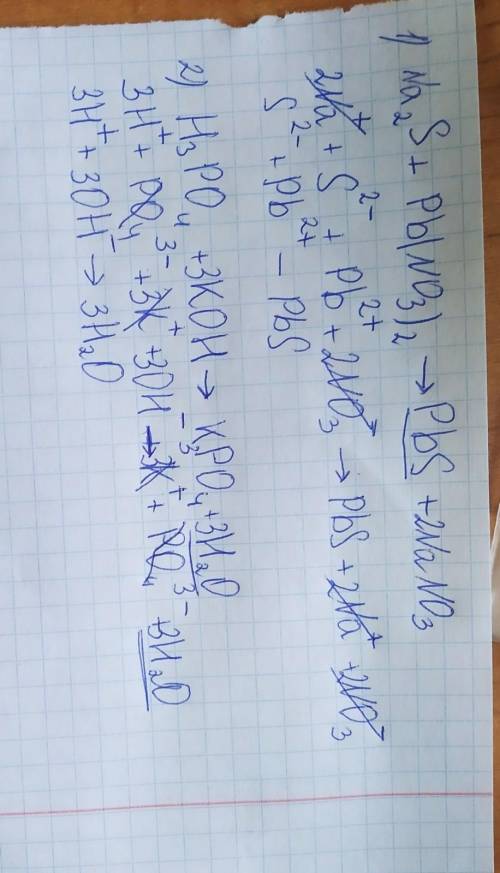 1) Na₂S + Pb(NO₃)₂ → PbS + 2NaNO₃
2Na⁺ + S²⁻ + Pb²⁺ + 2NO₃⁻ → PbS + 2Na⁺ + 2NO₃⁻
S²⁻ + Pb²⁺ – PbS
2) H₃PO₄ + 3KOH → K₃PO₄ + 3H₂O
3H⁺ + PO₄³⁻ + 3K⁺ + 3OH⁻ → 3K⁺ + PO₄³⁻ + 3H₂O
3H⁺ + 3OH⁻ → 3H₂O